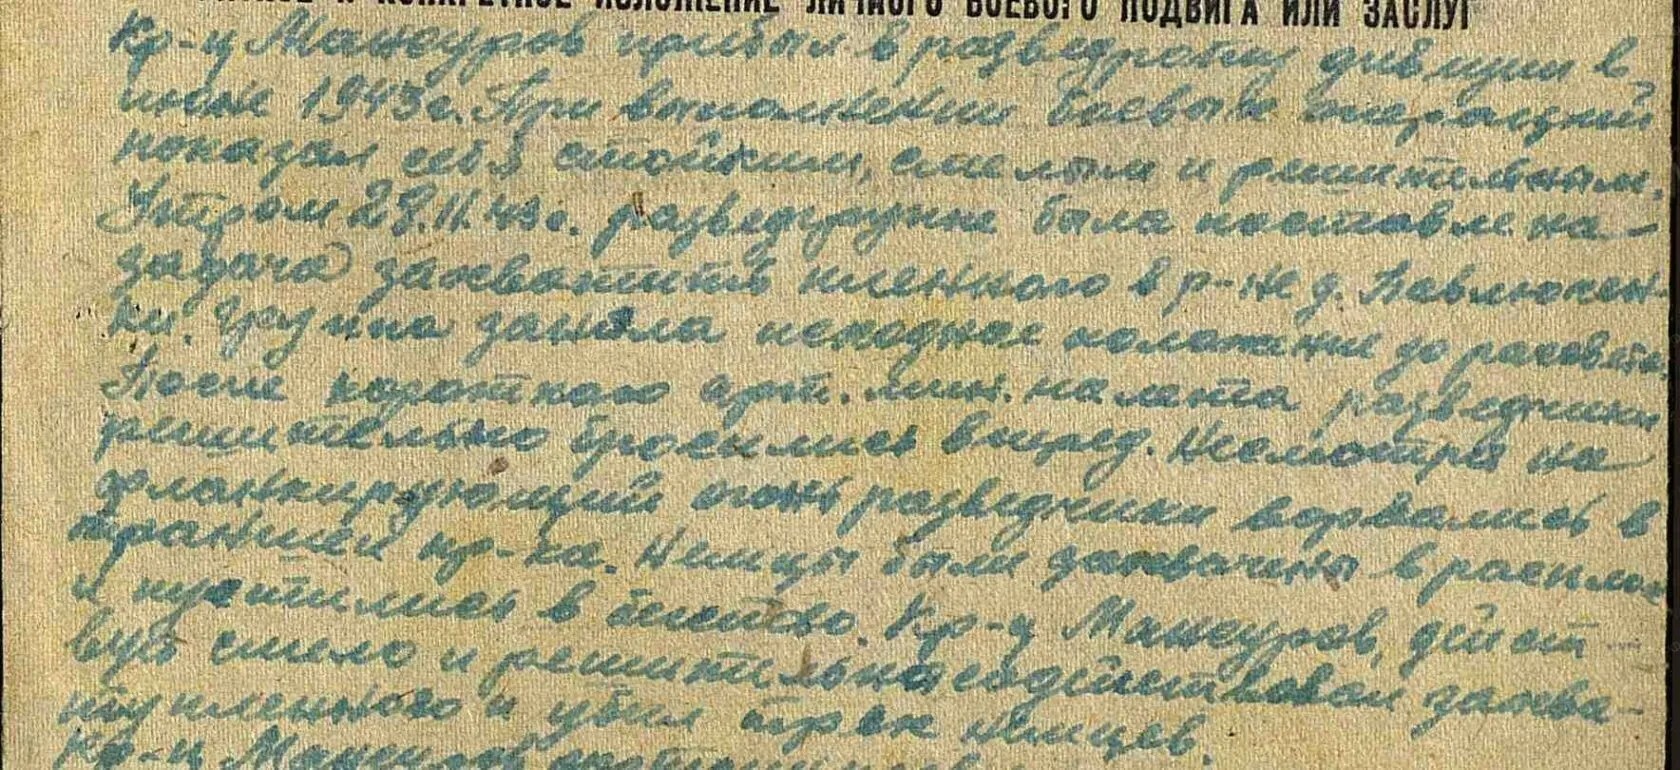 КРАТКОЕ И КОНКРЕТНОЕ ИЗЛОЖЕНИЕ ЛИЧНОГО БОЕВОГО ПОДВИГА ИЛИ ЗАСЛУГ
Кр-ц Мансуров прибыл в разведроту дивизии в
июне 1943г. При выполнении боевых операций
показал себя стойким, смелым и решительным.
Утром 29.11.43г. разведгруппе была поставлена
задача захватить пленного в р-не д. Павлючен-
ки. Группа заняла исходное положение до рассвета.
После короткого арт. мин. налета разведчики
решительно бросились вперед. Несмотря на
фланкирующий огонь разведчики ворвались в
траншеи пр-ка. Немцы были захвачены в расплох
и пустились в бегство. Кр-ц Мансуров, дейст-
вуя смело и решительно содействовал захва-
ту пленного и убил трех немцев.
Кр-ц Мансуров